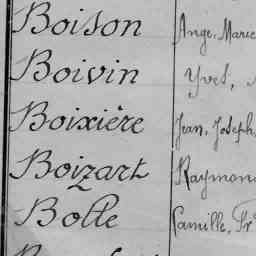 Boison Ange, Marie
Boivin Yves,
Boixière Jean, Joseph
Boizart Raymon
Bolle Camille, Fr